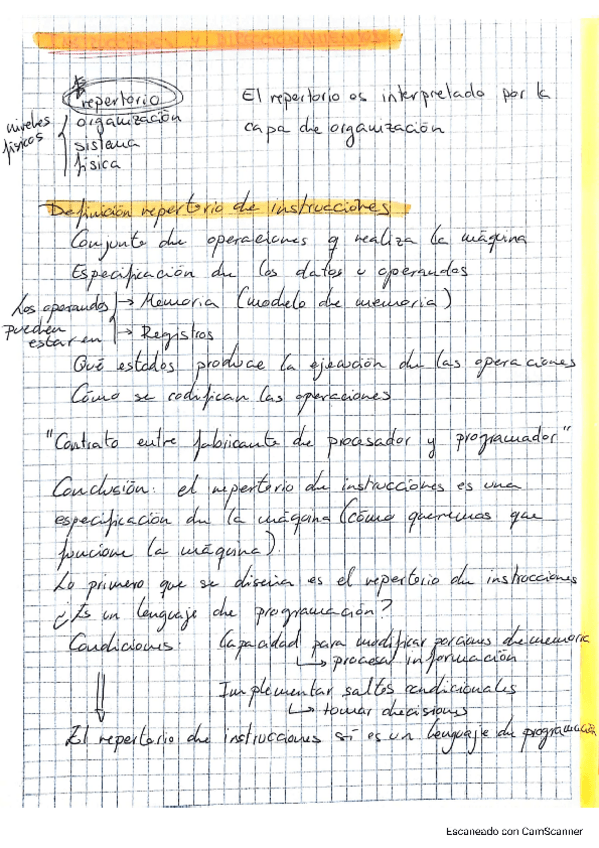 repertorio
organización
sistema
física
niveles
físicos
El repertorio es interpretado por la
capa de organización
Definición repertorio de instrucciones
Conjunto de operaciones q realiza la máquina
Especificación de los datos u operandos
Los operandos
pueden
estar en
→ Memoria (modelo de memoria)
→ Registros
Qué estados produce la ejecución de las operaciones
Cómo se codifican las operaciones
"Contrato entre fabricante de procesador y programador"
Conclusión: el repertorio de instrucciones es una
especificación de la máquina (cómo queremos que
funcione la máquina).
Lo primero que se diseña es el repertorio de instrucciones
¿Es un lenguaje de programación?
Condiciones: Capacidad para modificar porciones de memoria
↳ procesar información
Implementar saltos condicionales
↳ tomar decisiones
El repertorio de instrucciones sí es un lenguaje de programación
Escaneado con CamScanner